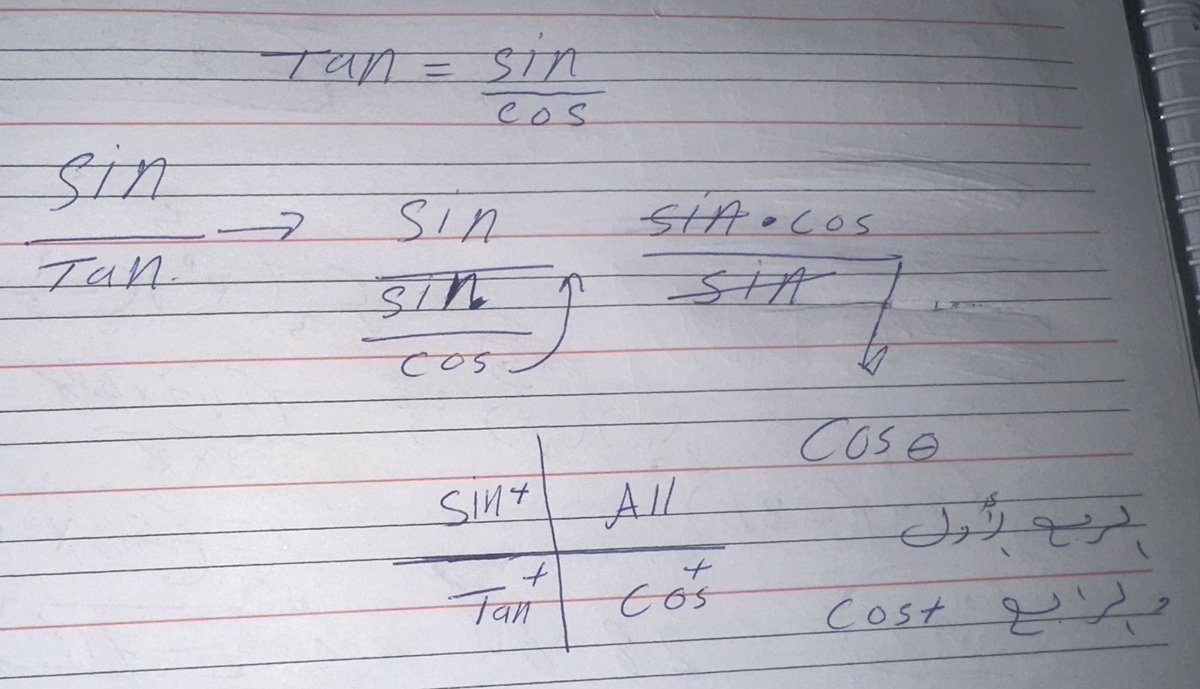 Tan = sin
cos
sin
Tan.
→ sin
sin
cos
sin • cos
sin
Cos θ
sin+ All
Tan+ Cos+
بربع الأول
وبرابع Cos+